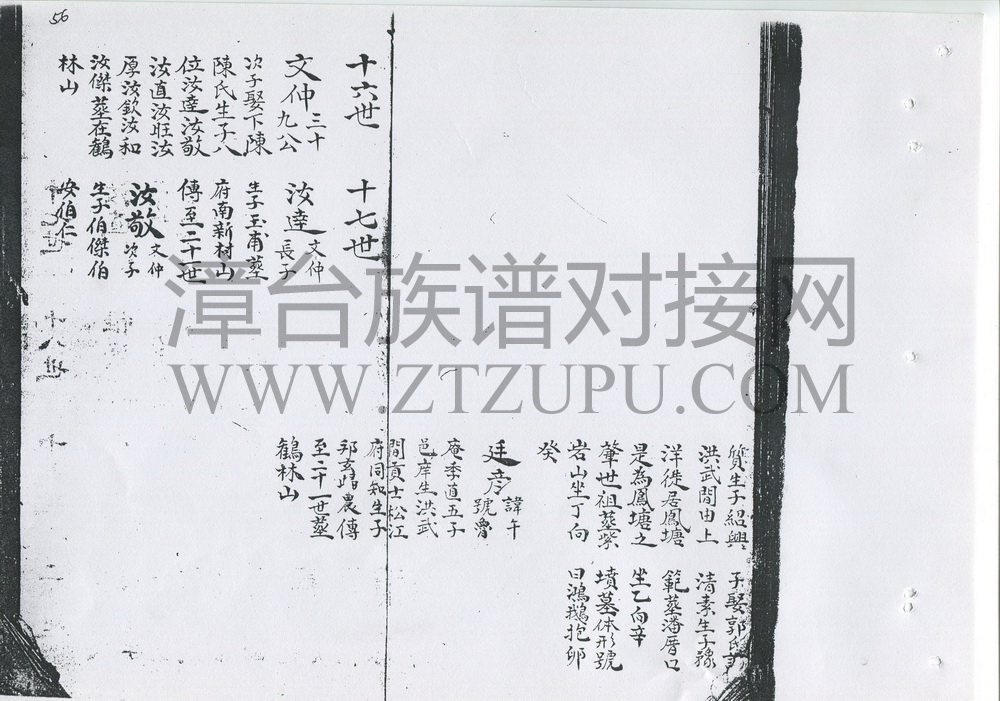 56
質生子紹興
洪武間由上
洋徙居鳳塘
是為鳳塘之
肇世祖葬紫
岩山坐丁向
癸
廷彥 諱午號魯
庵季直五子
邑庠生洪武
間貢士松江
府同知生子
邦玄 農傳
至二十一世葬
鶴林山
子娶郭氏
清素生子豫
範葬潘厝口
坐乙向辛
墳墓体形號
曰鴻鵝抱卵
十六世
文仲 三十九公
次子娶下陳
陳氏生子八
位汝達汝敬
汝直汝旺汝
厚汝欽汝和
汝傑葬在鶴
林山
十七世
汝達 文仲長子
生子玉甫葬
府南新村山
傳至二十一世
汝敬 文仲次子
生子伯傑伯
安伯仁
漳台族谱对接网
WWW.ZTZUPU.COM